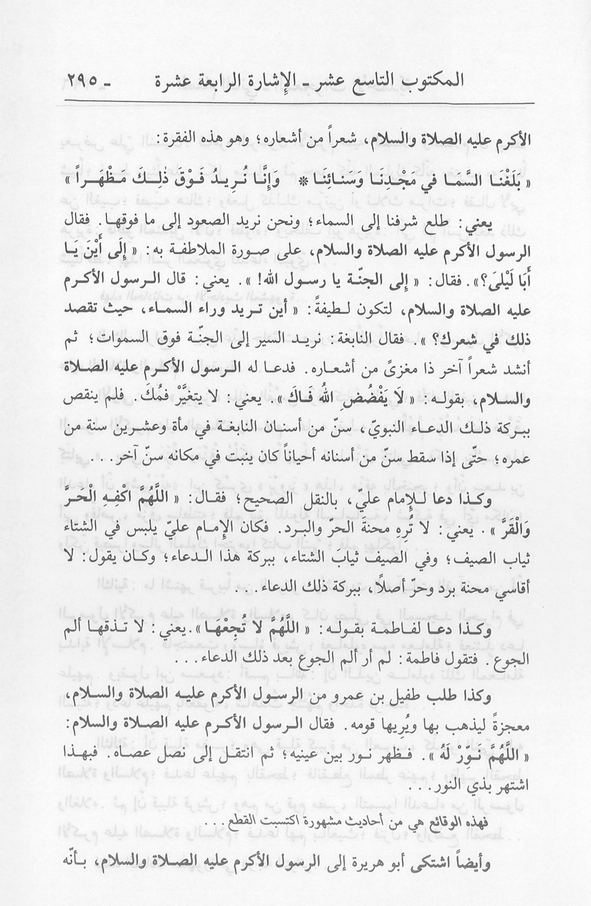 المكتوب التاسع عشر ـ الإشارة الرابعة عشرة ـ ٢٩٥
الأكرم عليه الصلاة والسلام، شعراً من أشعاره؛ وهو هذه الفقرة:
« بَلَغْنَا السَّمَا في مَجْدِنَا وَسَنَائِنَا * وَإِنَّا نُرِيدُ فَوْقَ ذلِكَ مَظْهَراً »
يعني: طلع شرفنا إلى السماء؛ ونحن نريد الصعود إلى ما فوقها. فقال
الرسول الأكرم عليه الصلاة والسلام، على صورة الملاطفة به: « إِلَى أَيْنَ يَا
أَبَا لَيْلَى؟». فقال: « إلى الجنّة يا رسول الله! ». يعني: قال الرسول الأكرم
عليه الصلاة والسلام، لتكون لطيفةً: « أين تريد وراء السماء، حيث تقصد
ذلك في شعرك؟ ». فقال النابغة: نريد السير إلى الجنّة فوق السموات؛ ثم
أنشد شعراً آخر ذا مغزىً من أشعاره. فدعا له الرسول الأكرم عليه الصلاة
والسلام، بقوله: « لَا يَفْضُضِ اللهُ فَاكَ ». يعني: لا يتغيَّرْ فمُكَ. فلم ينقص
ببركة ذلك الدعاء النبويّ، سنّ من أسنان النابغة في مأة وعشرين سنة من
عمره؛ حتّى إذا سقط سنّ من أسنانه أحياناً كان ينبت في مكانه سنّ آخر...
وكذا دعا للإمام عليّ، بالنقل الصحيح؛ فقال: « اللَّهُمَّ اكْفِهِ الْحَرَّ
وَالْقَرَّ ». يعني: لا تُرِهِ محنةَ الحرّ والبرد. فكان الإمام عليّ يلبس في الشتاء
ثياب الصيف؛ وفي الصيف ثيابَ الشتاء، ببركة هذا الدعاء؛ وكان يقول: لا
أقاسي محنة برد وحرّ أصلاً، ببركة ذلك الدعاء...
وكذا دعا لفاطمة بقوله: « اللَّهُمَّ لا تُجِعْهَا ».يعني: لا تذقها ألم
الجوع. فتقول فاطمة: لم أر ألم الجوع بعد ذلك الدعاء...
وكذا طلب طفيل بن عمرو من الرسول الأكرم عليه الصلاة والسلام،
معجزةً ليذهب بها ويُرِيها قومه. فقال الرسول الأكرم عليه الصلاة والسلام:
« اللَّهُمَّ نَوِّرْ لَهُ ». فظهر نور بين عينيه؛ ثم انتقل إلى نصل عصاه. فبهذا
اشتهر بذي النور...
فهذه الوقائع هي من أحاديث مشهورة اكتسبت القطع...
وأيضاً اشتكى أبو هريرة إلى الرسول الأكرم عليه الصلاة والسلام، بأنّه